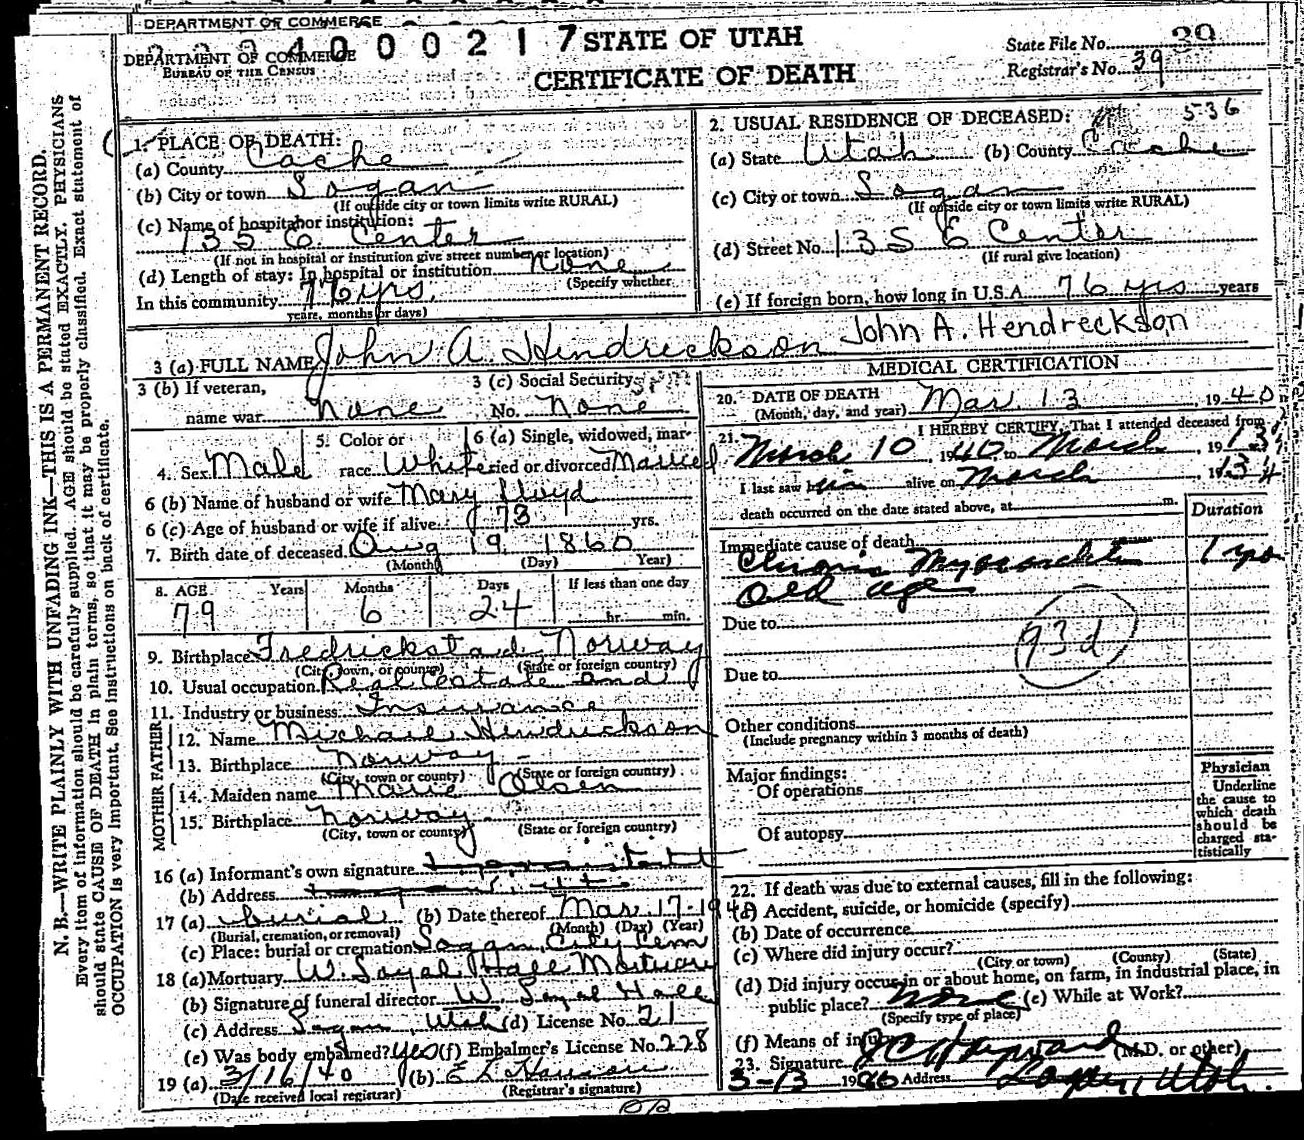 DEPARTMENT OF COMMERCE
400217 STATE OF UTAH
DEPARTMENT OF COMMERCE
BUREAU OF THE CENSUS
CERTIFICATE OF DEATH
State File No. 39
Registrar's No. 39
N. B.—WRITE PLAINLY WITH UNFADING INK—THIS IS A PERMANENT RECORD.
Every item of information should be carefully supplied. AGE should be stated EXACTLY. PHYSICIANS
should state CAUSE OF DEATH in plain terms, so that it may be properly classified. Exact statement of
OCCUPATION is very important. See instructions on back of certificate.
1. PLACE OF DEATH:
(a) County Cache
(b) City or town Logan
(If outside city or town limits write RURAL)
(c) Name of hospital or institution:
135 E. Center
(If not in hospital or institution give street number or location)
(d) Length of stay: In hospital or institution None
(Specify whether
In this community 76 yrs.
years, months or days)
2. USUAL RESIDENCE OF DECEASED: 536
(a) State Utah (b) County Cache
(c) City or town Logan
(If outside city or town limits write RURAL)
(d) Street No. 135 E Center
(If rural give location)
(e) If foreign born, how long in U.S.A. 76 yrs years
3 (a) FULL NAME John A. Hendreckson John A. Hendreckson
3 (b) If veteran, 3 (c) Social Security
name war none No. none
4. Sex Male 5. Color or race White 6 (a) Single, widowed, married or divorced Married
6 (b) Name of husband or wife Mary Lloyd
6 (c) Age of husband or wife if alive 73 yrs.
7. Birth date of deceased Aug 19 1860
(Month) (Day) Year)
8. AGE Years Months Days If less than one day
79 6 24 hr. min.
9. Birthplace Fredrickstad, Norway
(City, town, or county) (State or foreign country)
10. Usual occupation Real Estate and
11. Industry or business Insurance
FATHER
12. Name Michael Hendrickson
13. Birthplace Norway
(City, town or county) (State or foreign country)
MOTHER
14. Maiden name Marie Olsen
15. Birthplace Norway
(City, town or county) (State or foreign country)
16 (a) Informant's own signature
(b) Address
17 (a) burial (b) Date thereof Mar. 17-1940
(Burial, cremation, or removal) (Month) (Day) (Year)
(c) Place: burial or cremation Logan City Cem
18 (a) Mortuary W. Loyal Hall Mortuary
(b) Signature of funeral director W. Loyal Hall
(c) Address Logan, Utah (d) License No. 21
(e) Was body embalmed? Yes (f) Embalmer's License No. 228
19 (a) 3/16/40 (b)
(Date received local registrar) (Registrar's signature)
MEDICAL CERTIFICATION
20. DATE OF DEATH
(Month, day, and year) Mar. 13, 1940
21. I HEREBY CERTIFY, That I attended deceased from
March 10 1940 to March 13, 19
I last saw him alive on March 13, 19
death occurred on the date stated above, at m.
Duration
Immediate cause of death
Chronic Myocarditis 1 yr
Old age
Due to
93d
Due to
Other conditions
(Include pregnancy within 3 months of death)
Major findings:
Of operations
Of autopsy
Physician
Underline
the cause to
which death
should be
charged sta-
tistically
22. If death was due to external causes, fill in the following:
(a) Accident, suicide, or homicide (specify)
(b) Date of occurrence
(c) Where did injury occur?
(City or town) (County) (State)
(d) Did injury occur in or about home, on farm, in industrial place, in
public place? none (e) While at Work?
(Specify type of place)
(f) Means of injury
23. Signature J C Hayward (M.D. or other)
3-13 19 Address Logan, Utah.